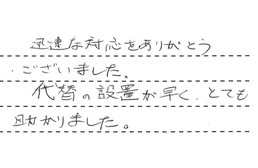 迅速な対応をありがとう
ございました。
代替の設置が早く、とても
助かりました。